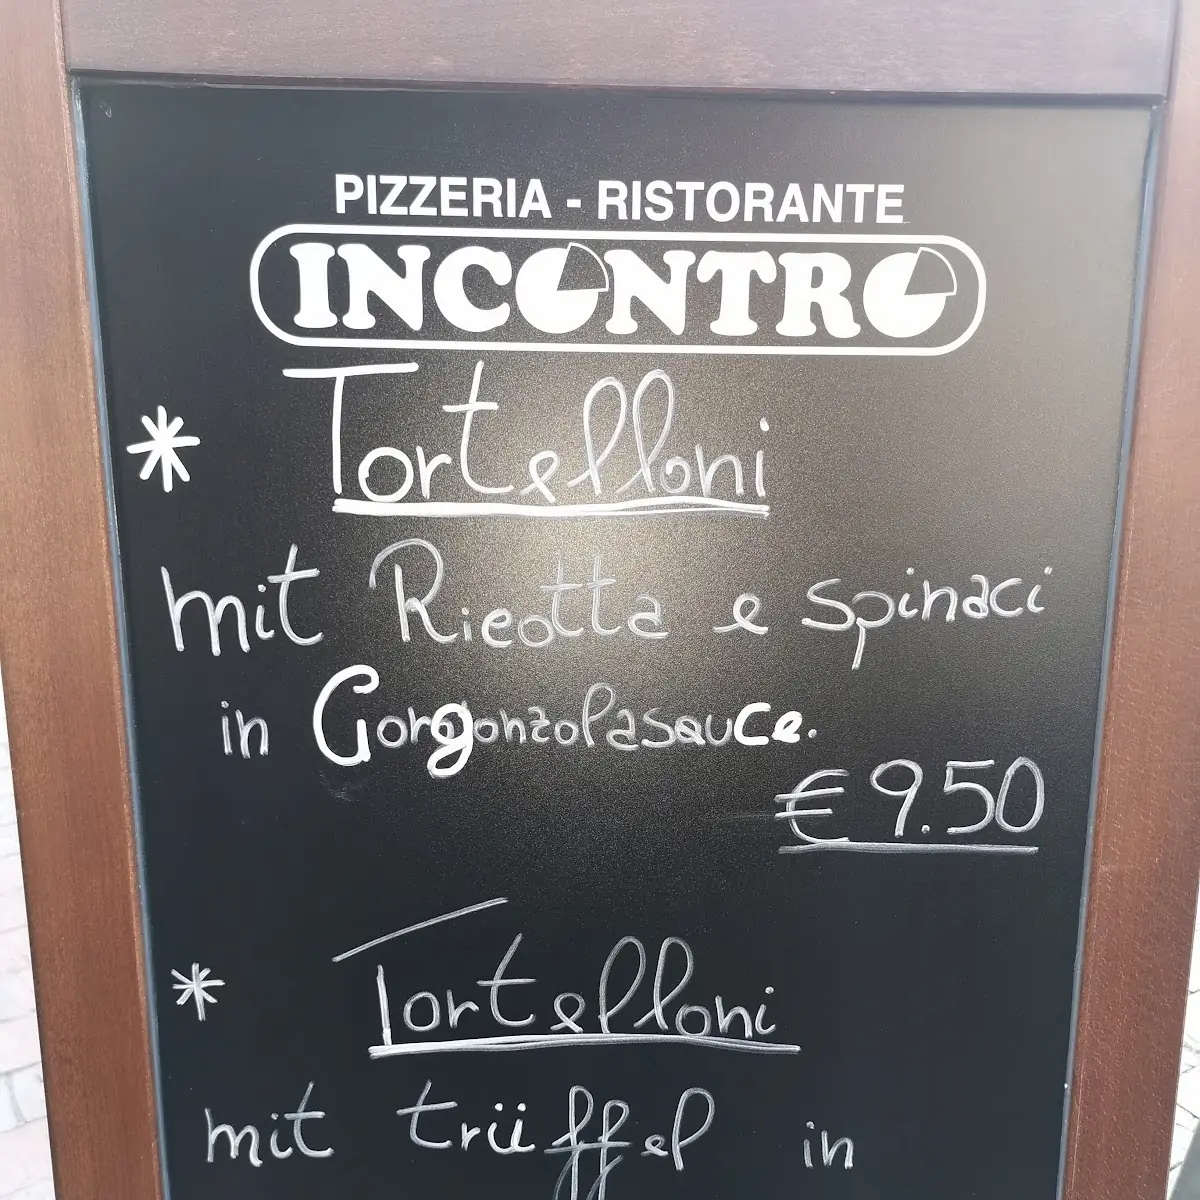 PIZZERIA - RISTORANTE
INCONTRO
* Tortelloni
mit Ricotta e spinaci
in Gorgonzolasauce.
€ 9.50
* Tortelloni
mit trüffel in